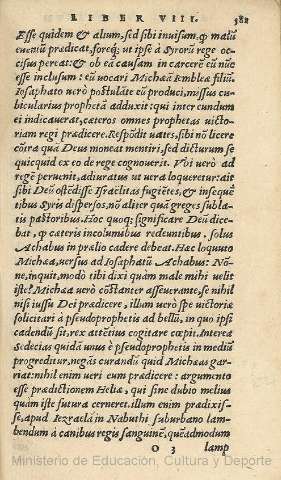 LIBER VIII. 382
Esse quidem & alium, sed sibi inuisum, q malũ
euentũ prædicat, foreq; ut ipse à Syrorũ rege oc-
cisus pereat: & ob eã causam in carcere eũ nuc
esse inclusum: eũ uocari Michæã Iembleæ filiũ.
Iosaphato uerò postulãte eũ produci, missus cu-
bicularius prophetã adduxit: qui inter eundum
ei indicauerat, cæteros omnes prophetas victo-
riam regi prædicere. Respõdit uates, sibi nõ licere
cõtra quã Deus moneat mentiri, sed dicturum se
quicquid ex eo de rege cognouerit. Vbi uerò ad
regẽ peruenit, adiuratus ut uera loqueretur: ait
sibi Deũ ostẽdisse Israëlitas fugiẽtes, & insequẽ
tibus Syris dispersos, nõ aliter quã greges subla-
tis pastoribus. Hoc quoq; significare Deũ dice-
bat, q cæteris incolumibus redeuntibus, solus
Achabus in prælio cadere debeat. Hæc loquuto
Michæa, uersus ad Iosaphatũ Achabus: Nõ-
ne, inquit, modò tibi dixi quàm male mihi uelit
iste? Michæa uerò cõstanter asseuerante, se nihil
nisi iussu Dei prædicere, illum uerò spe victoriæ
solicitari à pseudoprophetis ad bellũ, in quo ipsi
cadendũ sit, rex attẽtius cogitare cœpit. Interea
Sedecias quidã unus è pseudoprophetis in mediũ
progreditur, negãs curandũ quid Michæas gar-
riat: nihil enim ueri eum prædicere: argumento
esse prædictionem Heliæ, qui sine dubio melius
quàm iste futura cerneret. Illum enim prædixis-
se, apud Iezraelã in Nabuthi suburbano lam-
bendum à canibus regis sanguinẽ, quẽadmodum
O 3 lamp
Ministerio de Educación, Cultura y Deporte